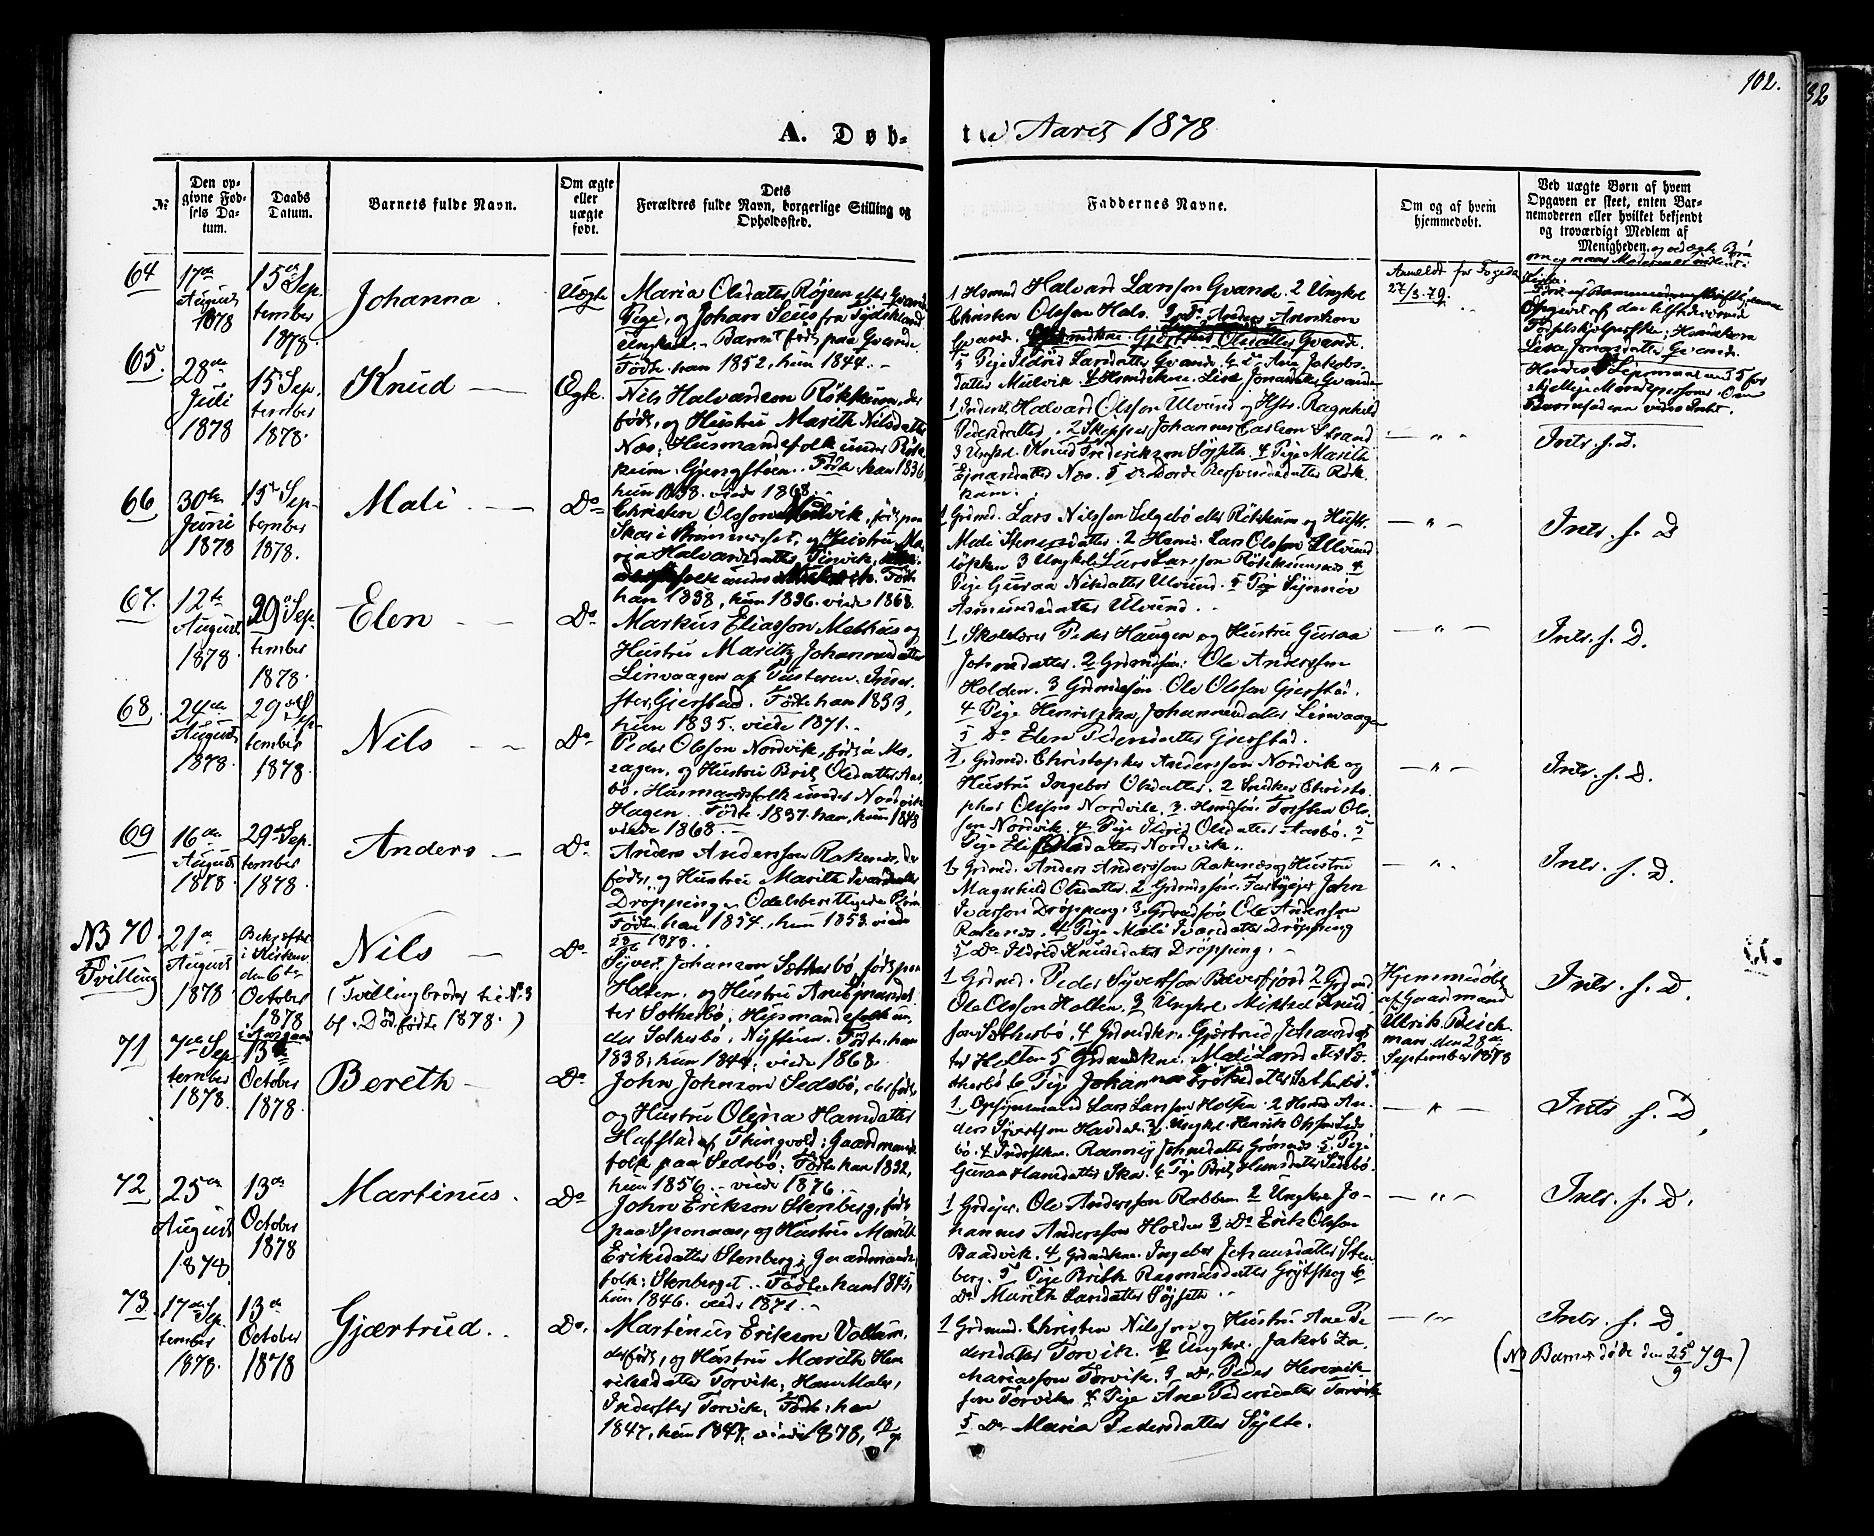 102.
A. Døb-
te Aaret 1878
№
Den op-
givne Fød-
sels Da-
tum.
Daabs
Datum.
Barnets fulde Navn.
Om ægte
eller
uægte
født.
Dets
Forældres fulde Navn, borgerlige Stilling og
Opholdssted.
Faddernes Navne.
Om og af hvem
hjemmedøbt.
Ved uægte Børn af hvem
Opgaven er skeet, enten Bar-
nemoderen eller hvilket bekjendt
og troværdigt Medlem af
Menigheden.
64
17de
August
1878
15de Sep.
tember
1878.
Johanna
Uægte
Maria Olsdatter Røjen eller Gvande
Pige, og Johan Seus fra Tydskland
Ungkarl. - Barnet født paa Gvande.
Fødte: han 1852, hun 1844. -
1 Hsmnd Halvard Larsson Gvande. 2 Ungkrl
Christen Olsson Hals.
5 Pige Sidrid Larsdatter Gvande. 6 do Ane Jakobs-
datter Mulvik.
Anmeldt for Fogeden
27/3.79.
65.
28de
Juli
1878
15 Sep.
tember
1878.
Knud
Ægte.
Nils Halvardson Røkkum, der
født, og Hustru Marith Nilsdatter
Næs; Husmandsfolk under Røk-
kum: Gjengstøen. Fødte: han 1836,
hun 1838. viede 1868.
1 Inderst Halvard Olsson Ulvund og Hstr. Ragnhild
Pedersdatter. 2 Skipper Johannes Carlson Strand
3 Ungkrl. Knud Frederikson Søjseth. 4 Pige Marith
Ejnarsdatter Næs. 5 do Dorde Bersvendsdatter Røk-
kum.
— „ „
Intr. s. D.
66
30te
Juni
1878
15de Sep-
tember
1878.
Mali
Do
Christen Olsson Mulvik, født paa
Skar i Strømmeset, og Hustru Ma-
ria Halvardsdatter Torvik,
han 1838, hun 1836. viede 1868.
1 Grdmd. Lars Nilsson Selgebø eller Røkkum og Hustr.
Mali Stenersdatter. 2 Hsmd. Lars Olsson Ulvund
løkken 3 Ungkrl. Lars Larsson Røkkumsnæs 4
Pige Guraa Nilsdatter Ulvund. 5 Pige Synnøv
Asmundsdatter Ulvund.
— „ —
Intr. s. D
67.
12te
August
1878
29de Sep-
tember
1878.
Elen
Do
Markus Eliasson Melhus og
Hustru Marith Johannesdatter
Linvaagen af Tusteren. Inder-
ster, Gjerstad. Fødte: han 1833,
hun 1835. viede 1871.
1 Skolelærer Peder Haugen og Hustru Guraa
Johnsdatter. 2 Grdmdsøn: Ole Andersson
Holden. 3 Grdmdsøn Ole Olsson Gjerstad.
4 Pige Henrikka Johannesdatter Linvaagen
5 Do Elen Pedersdatter Gjerstad.
— „ —
Intr. s. D.
68.
24de
August
1878.
29de Sep-
tember
1878.
Nils
Do
Peder Olsson Nordvik, født à Mo-
sagen, og Hustru Brit Olsdatter Aas-
bø, Husmandsfolk under Nordvik
Hagen. Fødte: 1837. han, hun 1848
viede 1868.
1. Grdmd. Christopher Andersson Nordvik og
Hustru Ingebor Olsdatter. 2 Snedker Christo-
pher Olsson Nordvik. 3. Hsmdsøn Torsten Ols-
son Nordvik. 4 Pige Sidrid Olsdatter Aasbø. 5
Pige Eli Olsdatter Nordvik.
— „ —
Intr. s. D.
69
16de
August
1878
29de Sep.
tember
1878.
Anders
Do
Anders Andersson Rakenæs, der
født, og Hustru Marith Ivarsdatter
Drøpping. Odelsberettigede
Fødte: han 1854, hun 1853. viede
1878.
1 Grdmd. Anders Andersson Rakenæs og Hustru
Magnhild Olsdatter. 2 Grdmdssøn: John
Ivarsson Drøpping. 3 Grdmdsøn Ole Andersson
Rakenæs. 4 Pige Mali Ivarsdatter Drøpping
5 Do Sidrid Knudsdatter Drøpping.
— „
Intr. s. D.
NB 70.
Tvilling
21de
August
1878
Bekræftet
i Kirken
den 6te
October
1878
Nils
(Tvillingbroder til No 3
bl. Dødfødte 1878.)
Do
Syver Johanson Sætherbø, født paa
Holten, og Hustru Ane
datter Sætherbø; Husmandsfolk un-
der Sætherbø, Nystuen. Fødte: han
1838; hun 1844; viede 1868.
1 Grdmd. Peder Syversson Bæverfjord 2 Grdmd
Ole Olsson Holten. 3 Ungkrl. Mikkel Knud-
son Sætherbø. 4 Grdmdkn. Gjertrud Johansdat-
ter Holten 5 Grdmdkne. Mali Larsdatter Sæ-
therbø 6 Pige Johanna Sætherbø.
Hjemmedøbt
af Gaardmand
Ulrik Beich-
man den 28de
September 1878
Intr. s. D.
71
7de Sep-
tember
1878.
13de
October
1878.
Bereth
Do
John Johnson Sedsbø, der født,
og Hustru Olina Hansdatter
Hafstad af Thingvold; Gaardmands-
folk paa Sedsbø; Fødte: han 1832,
hun 1856. viede 1876.
1. Opsynsmand Lars Larsson Holten. 2 Hsmd An-
ders Syversson Havdal. 3. Ungkrl. Henrik Olsson Seds-
bø. 4 Inderstkn. Rannej Johnsdatter Grønæs. 5. Pige
Guraa Hansdatter Skar. 6 Pige Brit Hansdatter Sedsbø.
— „ —
Intr. s. D.
72
25de
August
1878.
13de
October
1878
Martinus.
Do
John Erikson Stenberg, født
paa Sponaas, og Hustru Marit
Eriksdatter Stenberg; Gaardmands-
folk; Stenberget. Fødte: han 1845,
hun 1846. viede 1871.
1 Grdejer. Ole Andersson Rabben. 2 Ungkrl. Jo-
hannes Andersson Holden 3 Do Erik Olsson
Baadvik. 4 Grdmdkne. Ingeber Johansdatter Sten
berg. 5 Pige Brith Rasmusdatter Grytskog 6
Do Marith Larsdatter Søjseth.
— „ —
Intr. s. D.
73.
17de Sep-
tember
1878.
13de
October
1878
Gjærtrud.
Do.
Martinus Erikson Voldum,
derfødt, og Hustru Marith Hen-
riksdatter Torvik; Han Maler,
Inderster Torvik. Fødte: han
1847, hun 1847. viede 1878,
1 Grdmd. Christen Nilsson og Hustru Ane Pe-
dersdatter Torvik. 2 Ungkrl. Jakob Za-
chariasson Torvik. 3 do. Peder Henrik-
son Torvik. 4 Pige Ane Pedersdatter Torvik
5 Do Maria Pedersdatter Sylte.
— „ —
Intr. s. D.
(NB Barnet døde den 25de/9 79.)